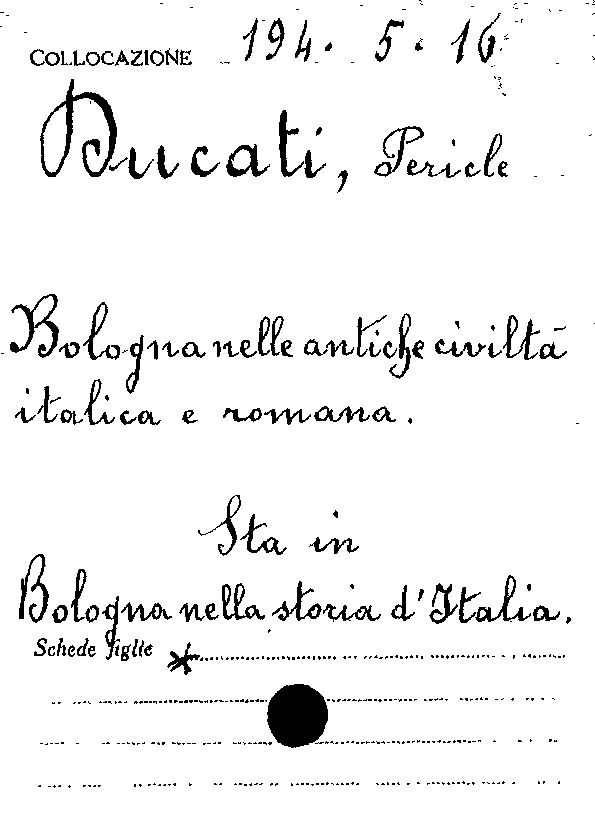 COLLOCAZIONE 194. 5. 16
Ducati, Pericle
Bologna nelle antiche civiltà
italica e romana.
Sta in
Bologna nella storia d'Italia.
Schede figlie *